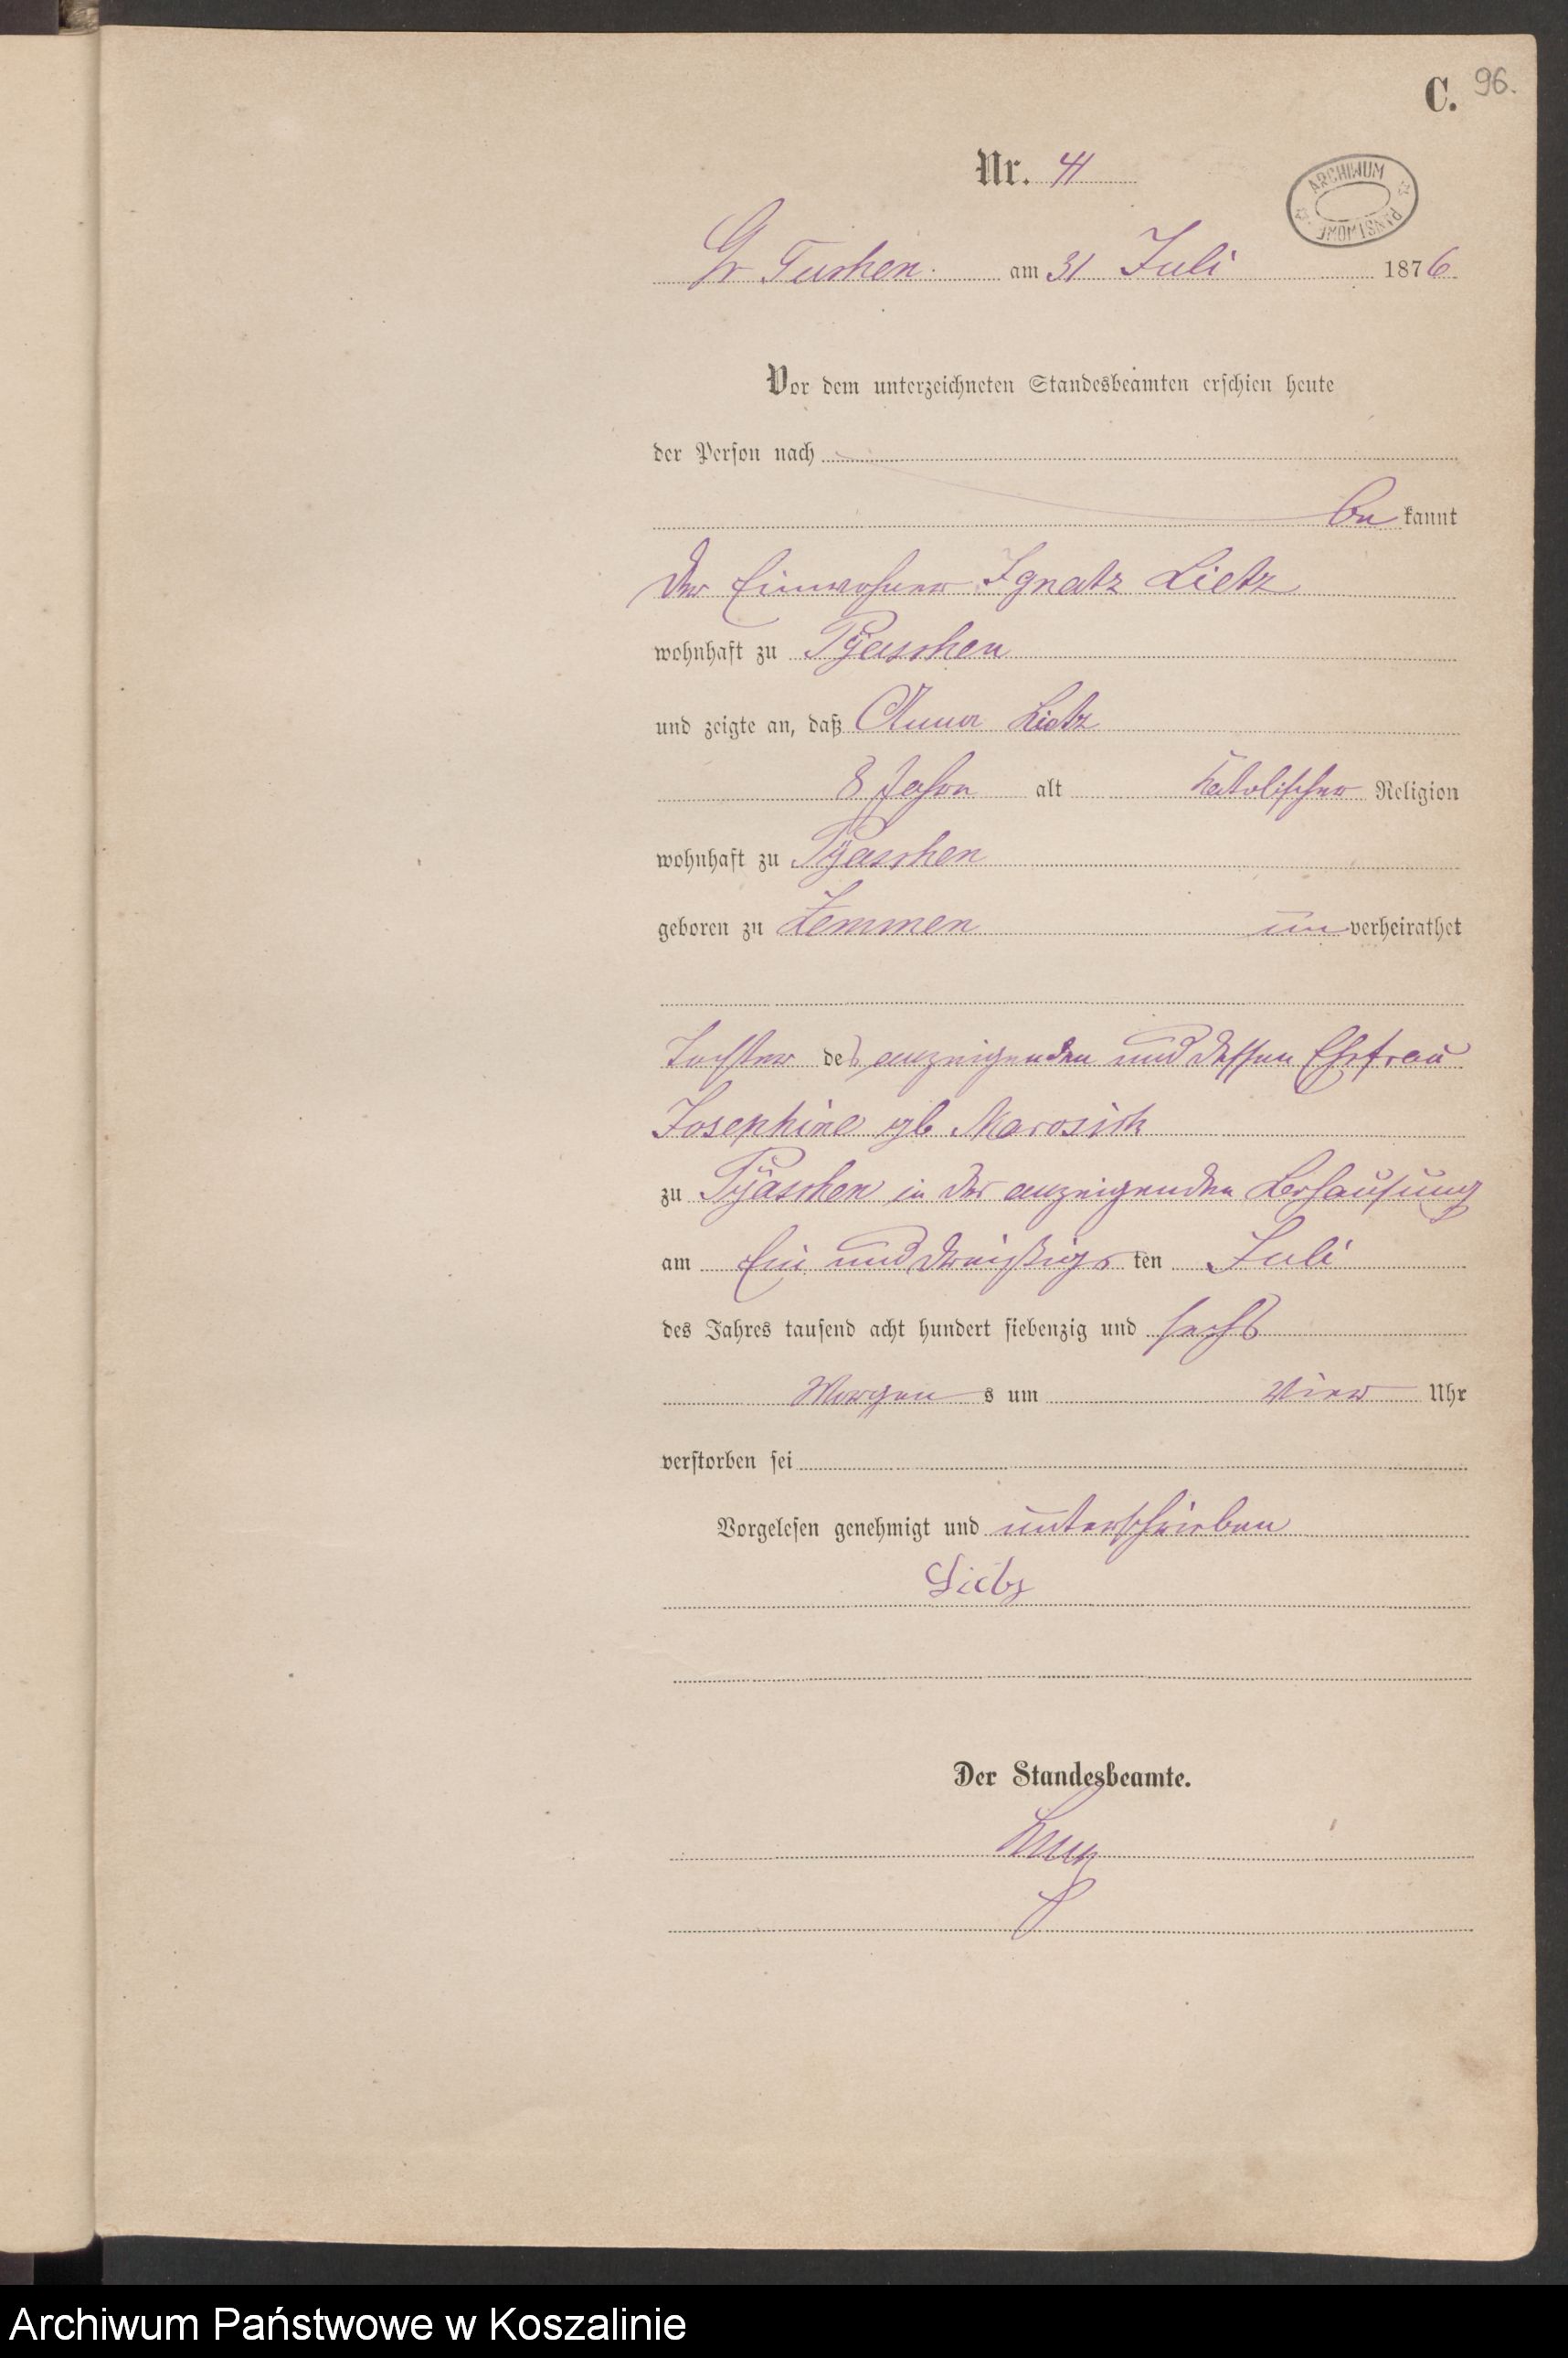 C. 96.
Nr. 41
ARCHIWUM PAŃSTWOWE
Gr Tuchen. am 31 Juli 1876
Vor dem unterzeichneten Standesbeamten erschien heute
der Person nach
be kannt
Der Einwohner Ignatz Lietz
wohnhaft zu Pyaschen
und zeigte an, daß Anna Lietz
8 Jahre alt katolischer Religion
wohnhaft zu Pÿaschen
geboren zu Zemmen un verheirathet
Tochter des anzeigenden und dessen Ehefrau
Josephine gb
zu Pÿaschen in der anzeigenden Behausung
am Ein und dreißigs ten Juli
des Jahres tausend acht hundert siebenzig und sechs
Morgen s um Vier Uhr
verstorben sei
Vorgelesen genehmigt und unterschrieben
Lietz
Der Standesbeamte.
Archiwum Państwowe w Koszalinie